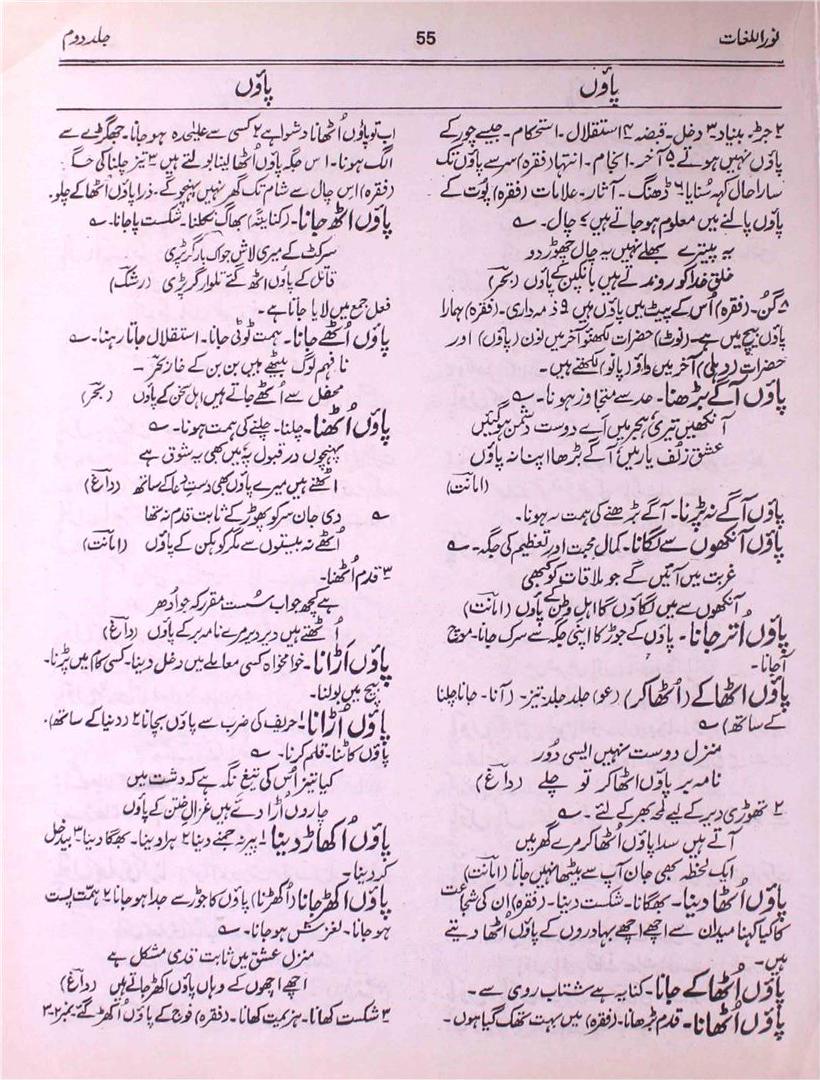 نوراللغات 55 جلد دوم
پاؤں
پاؤں
۲ جڑ۔ بنیاد ۳ دخل۔ قبضہ ۴ استقلال۔ استحکام۔ جیسے چور کے
پاؤں نہیں ہوتے ۵ آخر۔ انجام۔ انتہا (فقرہ) سر سے پاؤں تک
سارا حال کہہ سُنایا۔ ۶ ڈھنگ۔ آثار۔ علامات (فقرہ) پوت کے
پاؤں پالنے میں معلوم ہو جاتے ہیں ۷ چال۔ ؎
یہ پینترے بھلے نہیں یہ چال چھوڑ دو
خلقِ خدا کو روندتے ہیں بانکپن کے پاؤں (بحر)
۸ گُن۔ (فقرہ) اُس کے پیٹ میں پاؤں ہیں ۹ ذمہ داری۔ (فقرہ) ہمارا
پاؤں بیچ میں ہے۔ (نوٹ) حضرات لکھنؤ آخر میں نون (پاؤں) اور
حضرات (دہلی) آخر میں واؤ (پانو) لکھتے ہیں۔
پاؤں آگے بڑھنا۔ حد سے متجاوز ہونا۔ ؎
آنکھیں تیری ہجر میں اے دوست دشمن ہو گئیں
عشق زلف یار میں آگے بڑھا اپنا نہ پاؤں
(امانت)
پاؤں آگے نہ پڑنا۔ آگے بڑھنے کی ہمت نہ ہونا۔
پاؤں آنکھوں سے لگانا۔ کمال محبت اور تعظیم کی جگہ۔ ؎
غربت میں آئیں گے جو ملاقات کو کبھی
آنکھوں سے میں لگاؤں گا اہلِ وطن کے پاؤں (امانت)
پاؤں اُتر جانا۔ پاؤں کے جوڑ کا اپنی جگہ سے سرک جانا۔ موچ
آجانا۔
پاؤں اٹھا کے (اُٹھا کر) (عو) جلد جلد۔ تیز۔ (آنا۔ جانا چلنا
کے ساتھ) ؎
منزل دوست نہیں ایسی دُور
نامہ بر پاؤں اٹھا کر تو چلے (داغ)
۲ تھوڑی دیر کے لیے لمحہ بھر کے لئے۔ ؎
آتے ہیں سدا پاؤں اُٹھا کر مرے گھر میں
ایک لحظہ کبھی جان آپ سے بیٹھا نہیں جاتا (امانت)
پاؤں اُٹھا دینا۔ بھگانا۔ شکست دینا۔ (فقرہ) ان کی شجاعت
کا کیا کہنا میدان سے اچھے اچھے بہادروں کے پاؤں اُٹھا دیتے
ہیں۔
پاؤں اُٹھا کے جانا۔ کنایہ ہے شتاب روی سے۔
پاؤں اُٹھانا۔ قدم بڑھانا۔ (فقرہ) میں بہت تھک گیا ہوں۔
اب تو پاؤں اُٹھانا دشوار ہے ۲ کسی سے علیٰحدہ ہو جانا۔ جھگڑے سے
الگ ہونا۔ اس جگہ پاؤں اُٹھا لینا بولتے ہیں ۳ تیز چلنا کی جگہ
(فقرہ) اس چال سے شام تک گھر نہیں پہنچو گے۔ ذرا پاؤں اُٹھا کے چلو۔
پاؤں اٹھ جانا۔ (کنایۃً) بھاگ نکلنا۔ شکست پا جانا۔ ؎
سر کٹ کے میری لاش جو اک بار گر پڑی
قاتل کے پاؤں اٹھ گئے تلوار گر پڑی (رشک)
فعل جمع میں لایا جاتا ہے۔
پاؤں اُٹھے جانا۔ ہمت ٹوٹی جانا۔ استقلال جاتا رہنا۔ ؎
نافہم لوگ بیٹھے ہیں بن بن کے خار بحر۔
محفل سے اُٹھے جاتے ہیں اہل سخن کے پاؤں (بحر)
پاؤں اُٹھنا۔ چلنا۔ چلنے کی ہمت ہونا۔ ؎
پہنچوں در قبول پہ میں بھی یہ شوق ہے
اٹھتے ہیں میرے پاؤں بھی دستِ دعا کے ساتھ (داغ)
؎ دی جان سر کو پھوڑ کے ثابت قدم نہ تھا
اُٹھے نہ بیستوں سے مگر کوہکن کے پاؤں (امانت)
۳ قدم اُٹھنا۔
ہے کچھ جواب سُست مقرر کہ جو اُدھر
اُٹھتے ہیں دیر دیر مرے نامہ بر کے پاؤں (داغ)
پاؤں اڑانا۔ خوا نخواہ کسی معاملے میں دخل دینا۔ کسی کام میں پڑنا۔
بیچ میں بولنا۔
پاؤں اُڑانا۔ ۱ حریف کی ضرب سے پاؤں بچانا ۲ (دنیا کے ساتھ)۔
پاؤں کاٹنا۔ قلم کرنا۔ ؎
کیا تیز اُس کی تیغِ نگہ ہے کہ دشت میں
چاروں اُڑا دئے ہیں غزالِ ختن کے پاؤں
پاؤں اُکھاڑ دینا۔ ۱ پیر نہ جمنے دینا ۲ ہرا دینا۔ بھگا دینا ۳ بیدخل
کر دینا۔
پاؤں اکھڑ جانا (اُکھڑنا) پاؤں کا جوڑ سے جدا ہو جانا ۲ ہمت پست
ہو جانا۔ لغزش ہو جانا۔ ؎
منزل عشق میں ثابت قدمی مشکل ہے
اچھے اچھوں کے وہاں پاؤں اکھڑ جاتے ہیں (داغ)
۳ شکست کھانا۔ ہزیمت کھانا۔ (فقرہ) فوج کے پاؤں اکھڑ گئے۔ نمبر ۲-۳